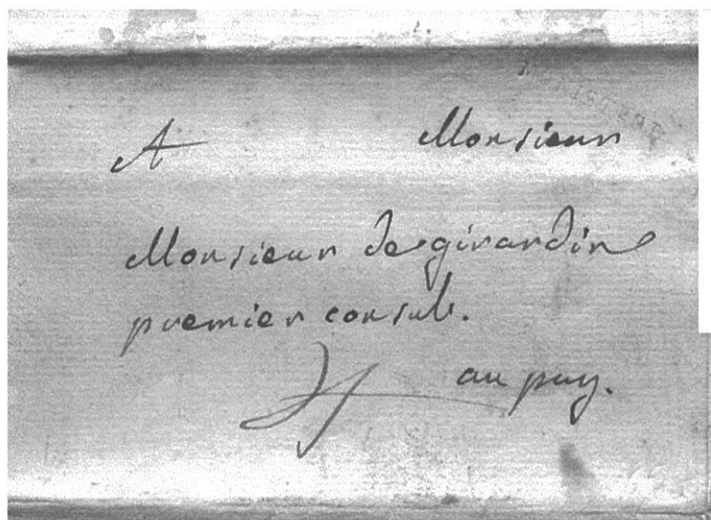 A Monsieur
Monsieur de girardin
premier consul.
au puy.